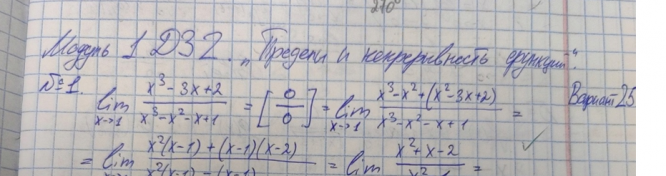 270°
Модуль 1 ДЗ 2. „Пределы и непрерывность функций“.
Вариант 25
№1. lim x→1 (x³-3x+2)/(x³-x²-x+1) = [0/0] = lim x→1 (x³-x²+(x²-3x+2))/(x³-x²-x+1) =
= lim (x²(x-1)+(x-1)(x-2))/(x²(x-1)-(x-1)) = lim (x²+x-2)/(x²-1) =